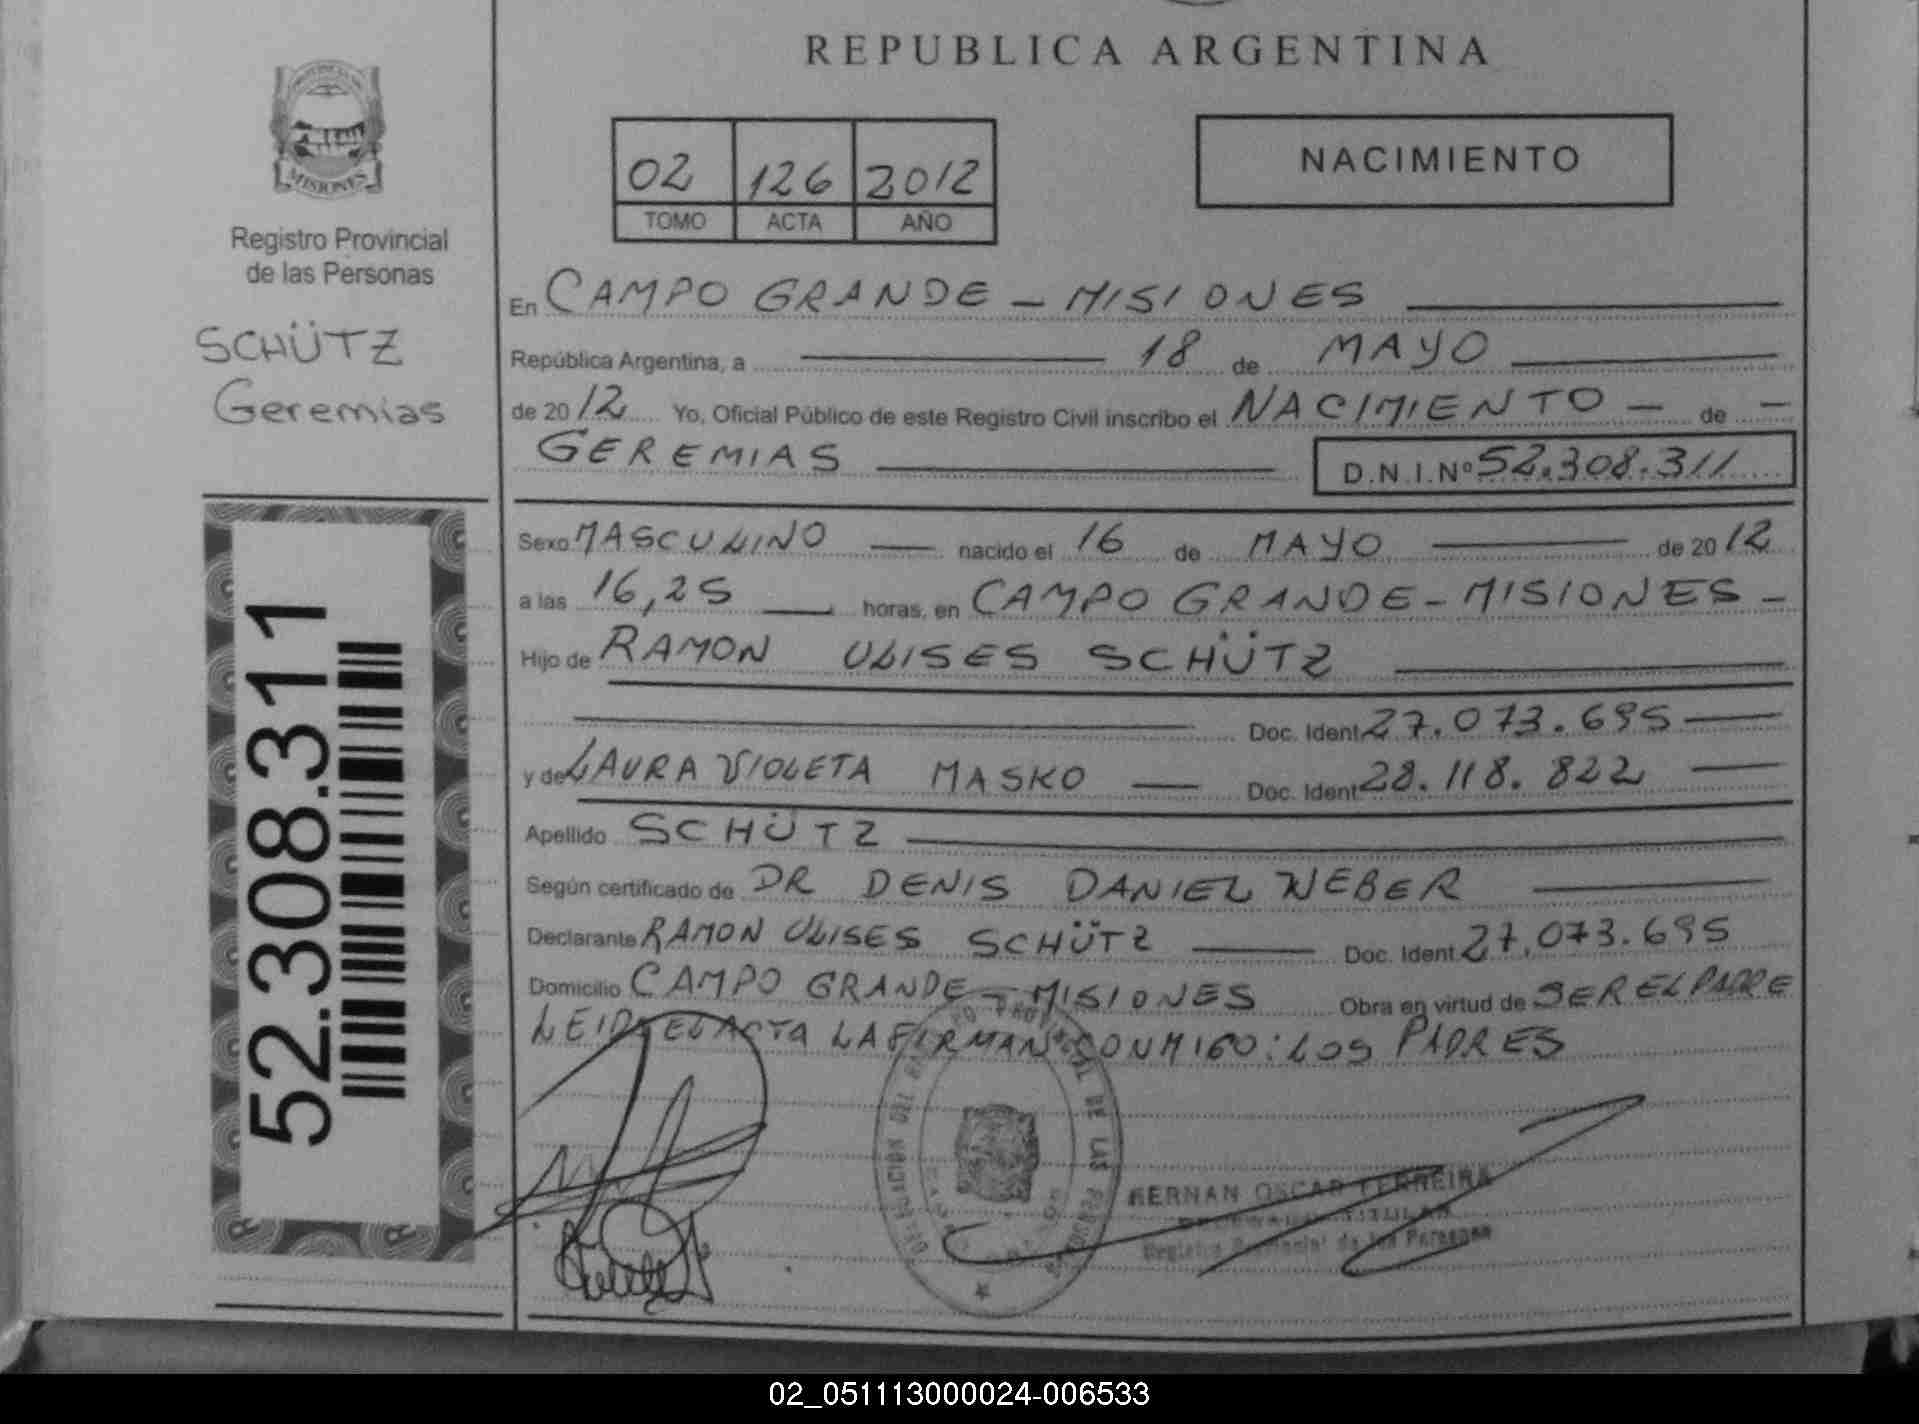 REPUBLICA ARGENTINA
MISIONES
Registro Provincial
de las Personas
SCHÜTZ
Geremias
52.308.311
02 126 2012
TOMO ACTA AÑO
NACIMIENTO
En CAMPO GRANDE - MISIONES
República Argentina, a 18 de MAYO
de 2012 Yo, Oficial Público de este Registro Civil inscribo el NACIMIENTO - de -
GEREMIAS D.N.I.Nº 52.308.311
Sexo MASCULINO nacido el 16 de MAYO de 2012
a las 16,25 horas, en CAMPO GRANDE - MISIONES -
Hijo de RAMON ULISES SCHÜTZ
Doc. Ident. 27.073.695
y de LAURA VIOLETA MASKO Doc. Ident. 28.118.822
Apellido SCHÜTZ
Según certificado de DR DENIS DANIEL WEBER
Declarante RAMON ULISES SCHÜTZ Doc. Ident. 27.073.695
Domicilio CAMPO GRANDE - MISIONES Obra en virtud de SER EL PADRE
LEIDA EL ACTA LA FIRMAN CONMIGO: LOS PADRES
DELEGACIÓN DEL PROVINCIAL DE LAS PERSONAS
HERNAN OSCAR FERREIRA
TITULAR
Registro Provincial de las Personas
02_051113000024-006533